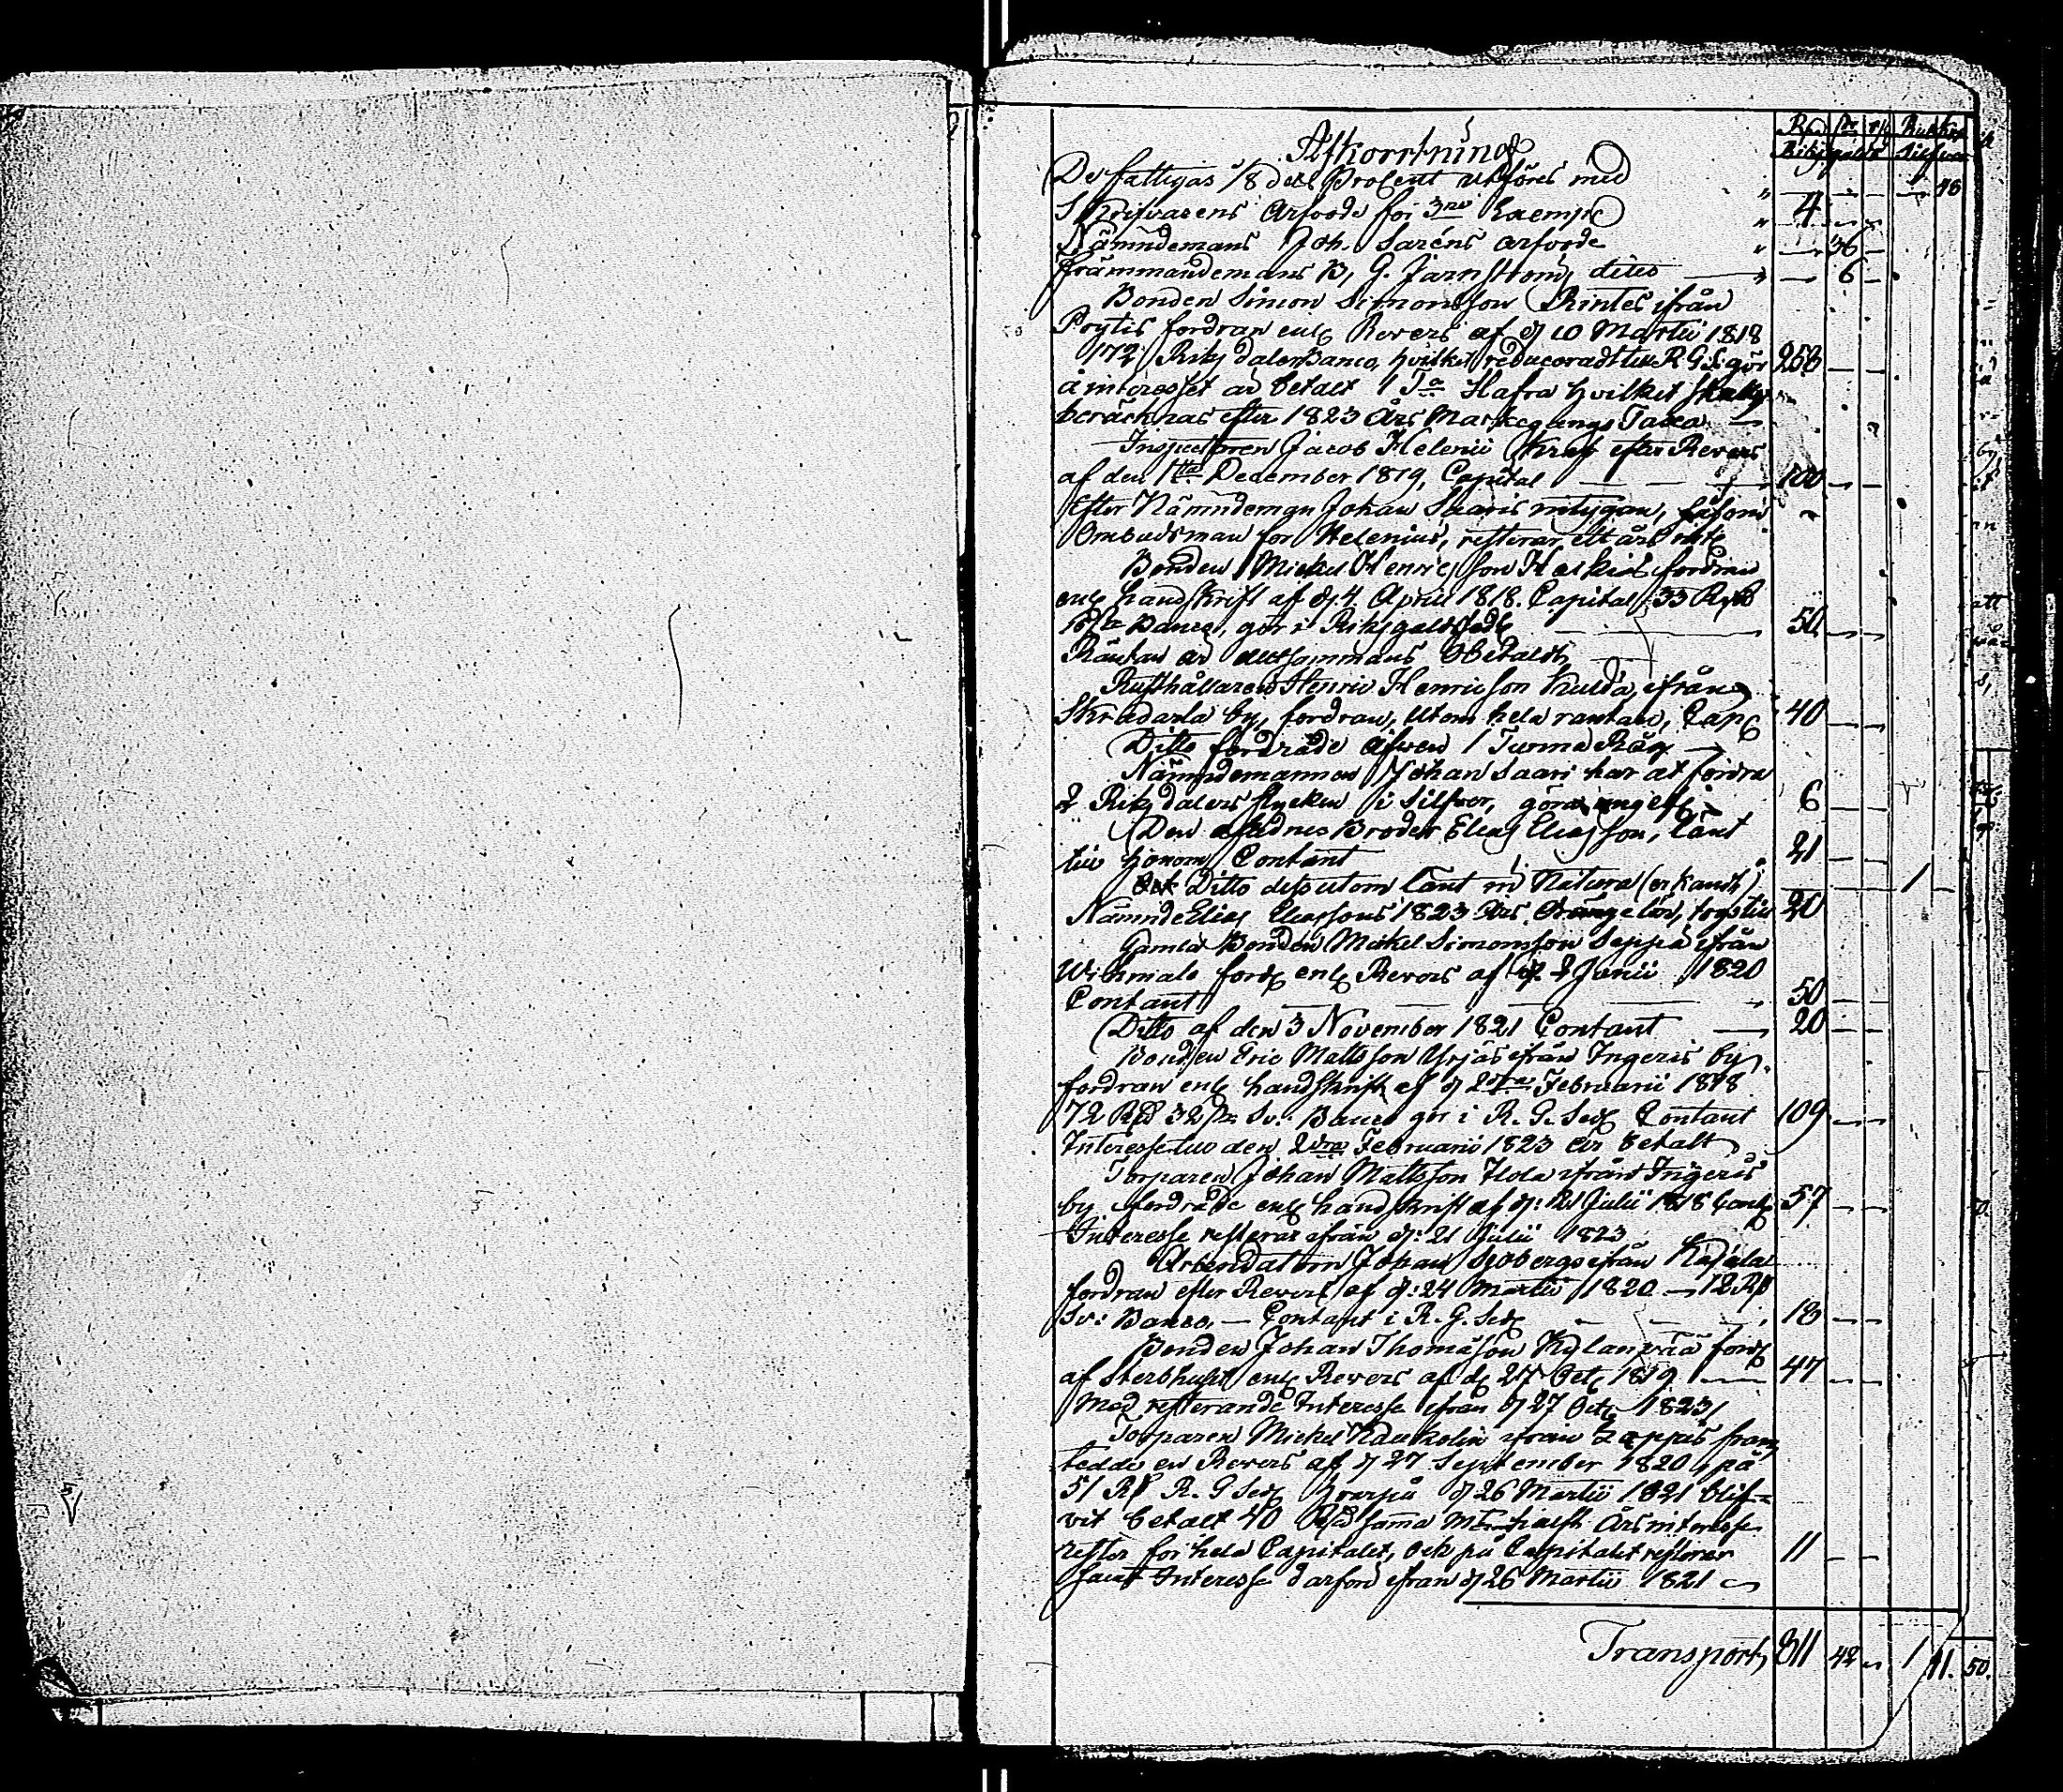 Afkorrtning
Rd s rs Rub Kop
Riksgäld Silfver
De fattigas 1/8 dels Procent utföres med " — — — — 48
Skrifvarens Arfvode för 3ne Exempl " 4 — —
Nämndemans Joh. Saréns arfvode " — 36 —
främmandemans B. G. Järnström, dito — " — 6 —
Bonden Simon Simonsson Rintes ifrån
Pöytis fordran enl Revers af d 10 Martii 1818
172 Riksdaler Banco, hvilket reduceradt till R G S: gör 258 — —
å interesset är betalt 1 Ta Hafra hvilket
beräcknas efter 1823 Års Markegångs Taxa —
Inspectoren Jacob Helenii Kraf efter Revers
af den 1ta December 1819, Capital — — — 100 — —
Efter Nämndeman Johan Saaris intygan, såsom
Ombudsman för Helenius, resterar ett års intr
Bonden Mickel Henricsson Heikis fordran
enl handskrift af d. 4 Aprill 1818. Capital 33 Rd
16 s Banco, gör i Riksgäldssedl — 50 — —
Räntan är allsammans Obetaldt,
Rusthållaren Henric Henricson Kulda, ifrån
Skradarla by, fordran, utom hela räntan, Cap 40 — —
Ditto fordrade äfven 1 Tunna Råg —
Nämndemannen Johan Saari har at fordra
2 Riksdalers stycken i Silfver, göra ungef: 6 — —
Den aflidnes Broder Elias Eliasson, länt
till honom Contant 21 — —
Ock Ditto dessutom länt in Natura (erkändt) — — — 1 —
Nämnde Elias Eliassons 1823 Års Drängelön, 20
Gamla Bonden Mickel Simonsson Seppä ifrån
Wihmalo ford enl Revers af d. 2 Junii 1820
Contant — — — 50 — —
Ditto af den 3 November 1821 Contant — 20 — —
Bonden Eric Mattsson Yrjäs ifrån Ingeris by
fordran enl handskrift af d 2dra Februarii 1818
72 Rd 32 s Sv: Banco gör i R. G. Sed Contant 109 — —
Interesse till den 2dra Februarii 1823 är betalt
Torparen Johan Mattsson Ilola ifrån Ingeris
by fordrade enl handskrift af d: 21 Julii 1818 Cont 57 — —
Interesse resterar ifrån d: 21 Julii 1823
Arrendatorn Johan Sjöbergs ifrån Karjala
fordran efter Revers af d: 24 Martii 1820 — 12 Rd
Sv: Banco, — Contant i R. G. Sed — — — 18 — —
Bonden Johan Thomasson Kylänpää ford
af Sterbhuset enl Revers af d. 27 Oct 1819 — 47 — —
Med resterande Interesse ifrån d 27 Oct 1823
Torparen Mickel Kaukolin ifrån Lappis fram
tedde en Revers af d 27 September 1820, på
51 Rd R. G Sed hvarpå d 26 Martii 1821 blif-
vit betalt 40 Rd samma halft Års interesse
rester för hela Capitalet, och på Capitalet resterar 11 — —
samt Interesse därföre ifrån d 26 Martii 1821
Transport, 811 42 — 1 11. 50.